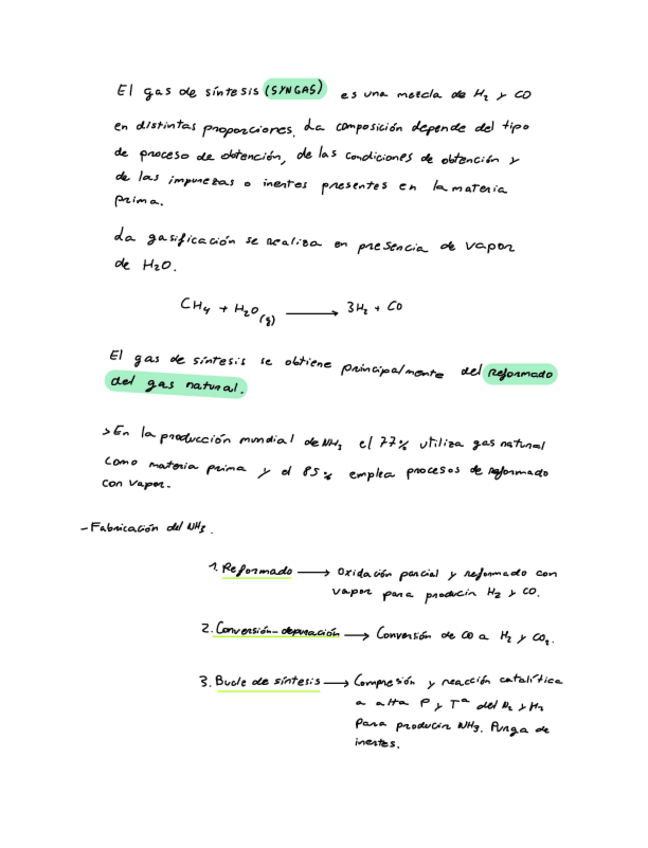 El gas de síntesis (SYNGAS) es una mezcla de H₂ y CO
en distintas proporciones. La composición depende del tipo
de proceso de obtención, de las condiciones de obtención y
de las impurezas o inertes presentes en la materia
prima.
La gasificación se realiza en presencia de vapor
de H₂O.
CH₄ + H₂O(g) ⟶ 3H₂ + CO
El gas de síntesis se obtiene principalmente del reformado
del gas natural.
> En la producción mundial de NH₃ el 77% utiliza gas natural
como materia prima y el 85% emplea procesos de reformado
con vapor.
- Fabricación del NH₃.
1. Reformado ⟶ Oxidación parcial y reformado con
vapor para producir H₂ y CO.
2. Conversión-depuración ⟶ Conversión de CO a H₂ y CO₂.
3. Bucle de síntesis ⟶ Compresión y reacción catalítica
a alta P y Tª del N₂ y H₂
para producir NH₃. Purga de
inertes.